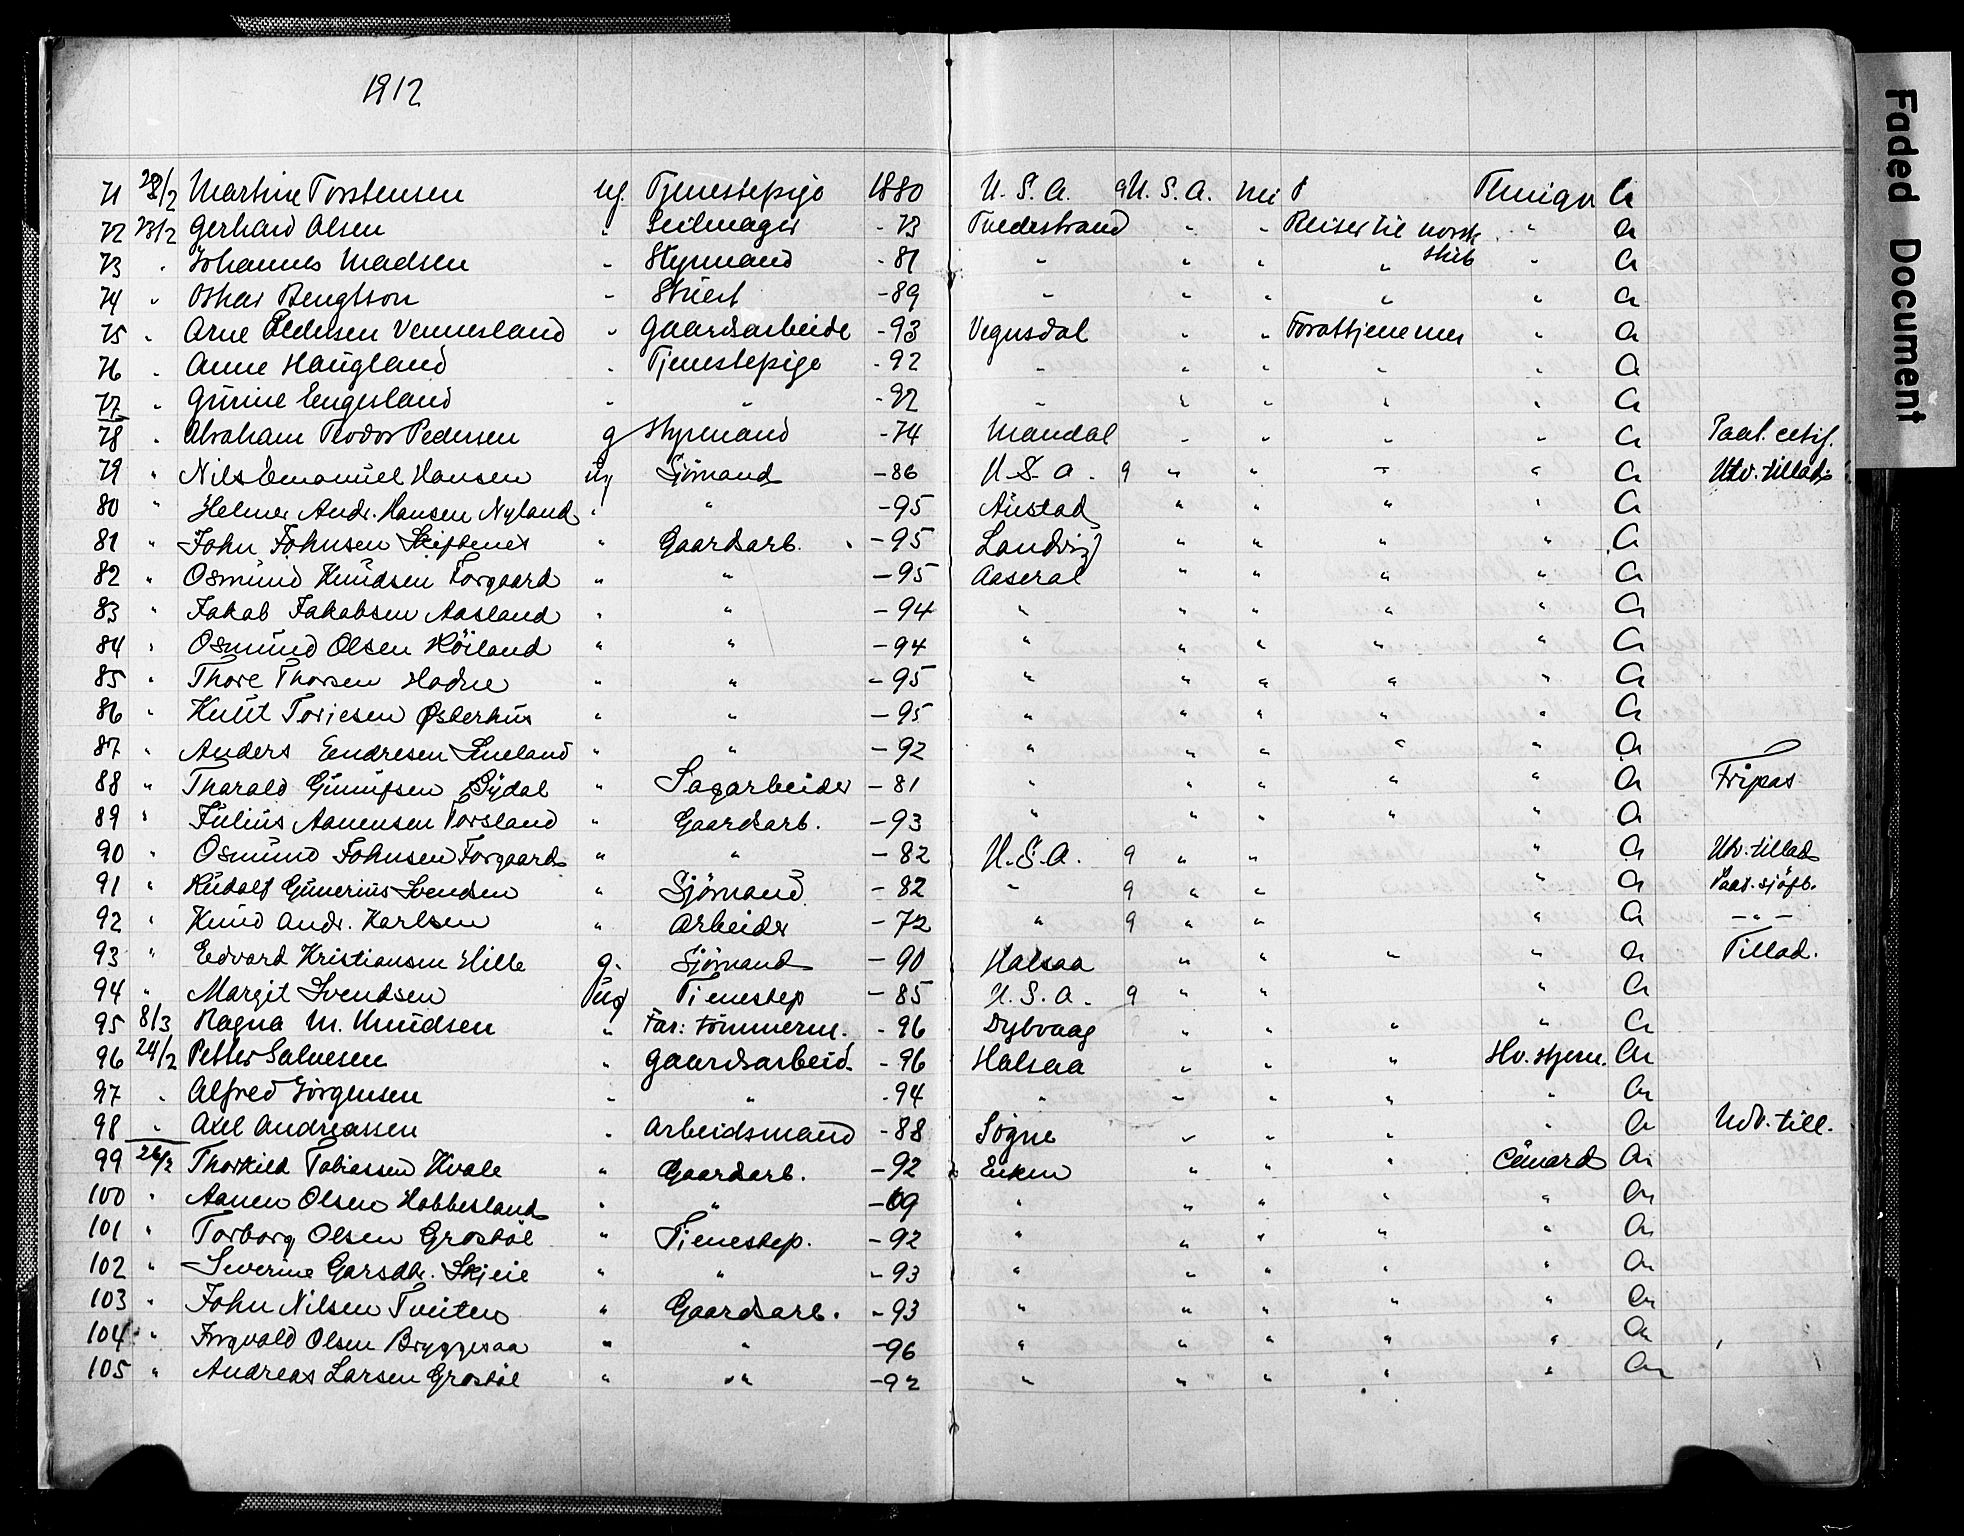 1912
71 28/2 Martine Torstensen ug. Tjenestepige 1880 U. S. A. 9 U. S. A. nei Thingv A
72 23/2 Gerhard Olsen " Seilmager - 73 Tvedestrand " " Reiser til norsk " A
73 " Johannes Madsen " Styrmand - 81 " " " " skib " A
74 " Oskar Bengtson " Stuert - 89 " " " " " A
75 " Arne Pedersen Vennesland " Gaardsarbeide - 93 Vegusdal " " For at tjene mer " A
76 " Anne Haugland " Tjenestepige - 92 " " " " " A
77 " Gurine Engesland " " - 92 " " " " " A
78 " Abraham Teodor Pedersen g Styrmand - 74 Mandal " " " " A Paat. certif.
79 " Nils Emanuel Hansen ug Sjömand - 86 U. S. A. 9 " " " " A Utv. tillad
80 " Helmer Andr. Hansen Nyland " " - 95 Austad " " " " A
81 " John Johnsen Skiftenes " Gaardsarb. - 95 Landvig " " " " A
82 " Osmund Knudsen Forgaard " " - 95 Aaseral " " " " A
83 " Jakob Jakobsen Aasland " " - 94 " " " " " A
84 " Osmund Olsen Höiland " " - 94 " " " " " A
85 " Thore Thorsen Hodne " " - 95 " " " " " A
86 " Knut Torjesen Østerhus " " - 95 " " " " " A
87 " Anders Eendresen Lineland " " - 92 " " " " " A
88 " Tharald Gunufsen Sydal " Sagarbeider - 81 " " " " " A Fripas
89 " Julius Aanensen Forsland " Gaardsarb. - 93 " " " " " A
90 " Osmund Johnsen Forgaard " " - 82 U. S. A. 9 " " " A Utv. tillad
91 " Rudolf Gunerius Svendsen " Sjömand - 82 " 9 " " " A Paat. sjöfb.
92 " Knud Andr. Karlsen " Arbeider - 72 " 9 " " " A - " -
93 " Eedvard Kristiansen Hille g. Sjömand - 90 Halsaa " " " " A Tillad.
94 " Margit Svendsen ug Tienestep - 85 U. S. A. 9 " " " A
95 8/3 Ragna M. Knudsen " Far: tömmerm. - 96 Dybvaag " " " " A
96 24/2 Petter Salvesen " Gaardsarbeid. - 96 Halsaa " " " Hv. stjern. A
97 " Alfred Jörgensen " " - 94 " " " " " A
98 " Axel Andreassen " Arbeidsmand - 88 Sögne " " " " A Udv. till.
99 26/2 Thorkild Tobiassen Kvale " Gaardsarb. - 92 Eiken " " " Cunard A
100 " Aanen Olsen Hobbesland " " - 69 " " " " " A
101 " Torborg Olsen Grostöl " Tienestep. - 92 " " " " " A
102 " Severine Garsdtr. Skjeie " " - 93 " " " " " A
103 " John Nilsen Tveiten " Gaardsarb. - 93 " " " " " A
104 " Ingvald Olsen Bryggesaa " " - 96 " " " " " A
105 " Andreas Larsen Grostöl " " - 92 " " " " " A
Faded Document